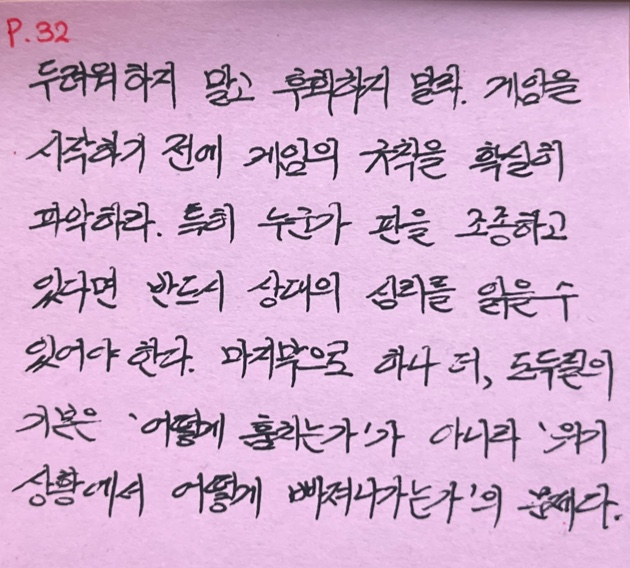 P.32
두려워하지 말고 후회하지 말라. 게임을
시작하기 전에 게임의 규칙을 확실히
파악하라. 특히 누군가 판을 조종하고
있다면 반드시 상대의 심리를 읽을 수
있어야 한다. 마지막으로 하나 더, 도둑질의
기본은 '어떻게 훔치는가'가 아니라 '위기
상황에서 어떻게 빠져나가는가'의 문제다.